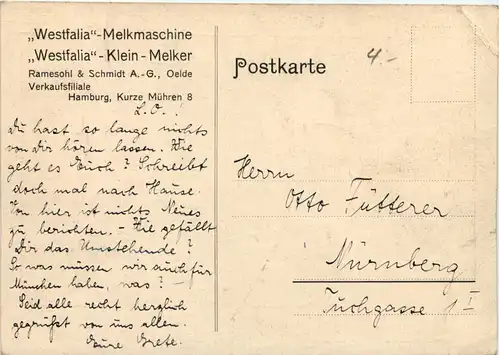 „Westfalia"-Melkmaschine
„Westfalia"-Klein-Melker
Ramesohl & Schmidt A.-G., Oelde
Verkaufsfiliale
Hamburg, Kurze Mühren 8
L. O.!
Du hast so lange nichts
von Dir hören lassen. Wie
geht es Euch? Schreibt
doch mal nach Hause.
Von hier ist nichts Neues
zu berichten. - Wie gefällt
Dir das Umstehende?
So was müssen wir auch für
München haben, was? -
Seid alle recht herzlich
gegrüßt von uns allen.
Eure Grete.
Postkarte
4.-
Herrn
Otto Fütterer
Nürnberg
Tuchgasse 1 I